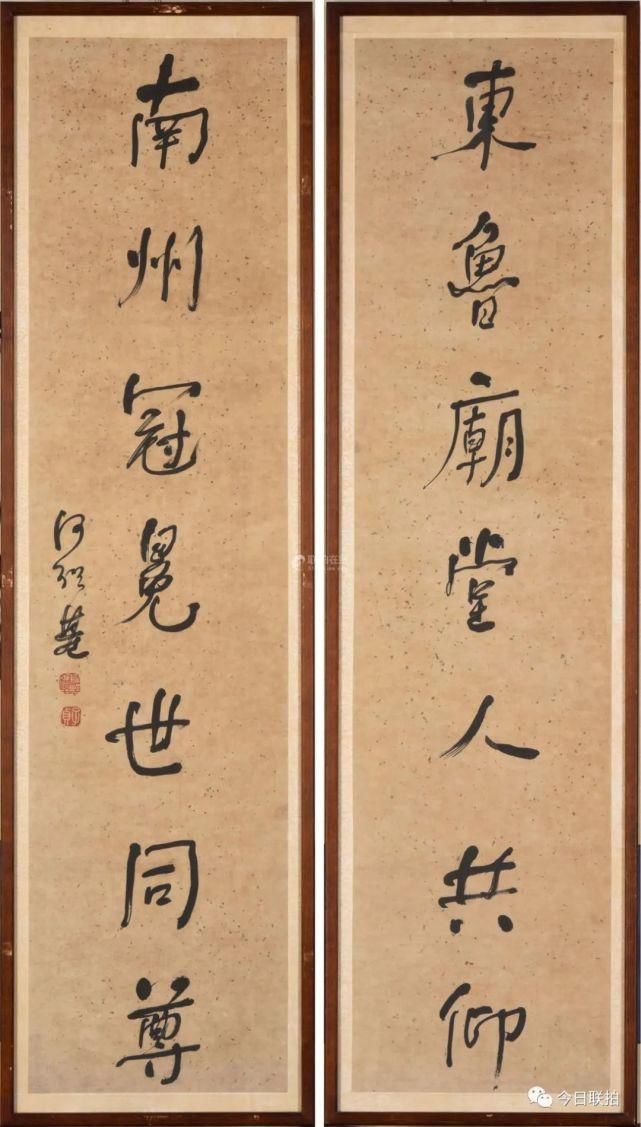 東魯廟堂人共仰
南州冠冕世同尊
何紹基
联拍在线
今日联拍